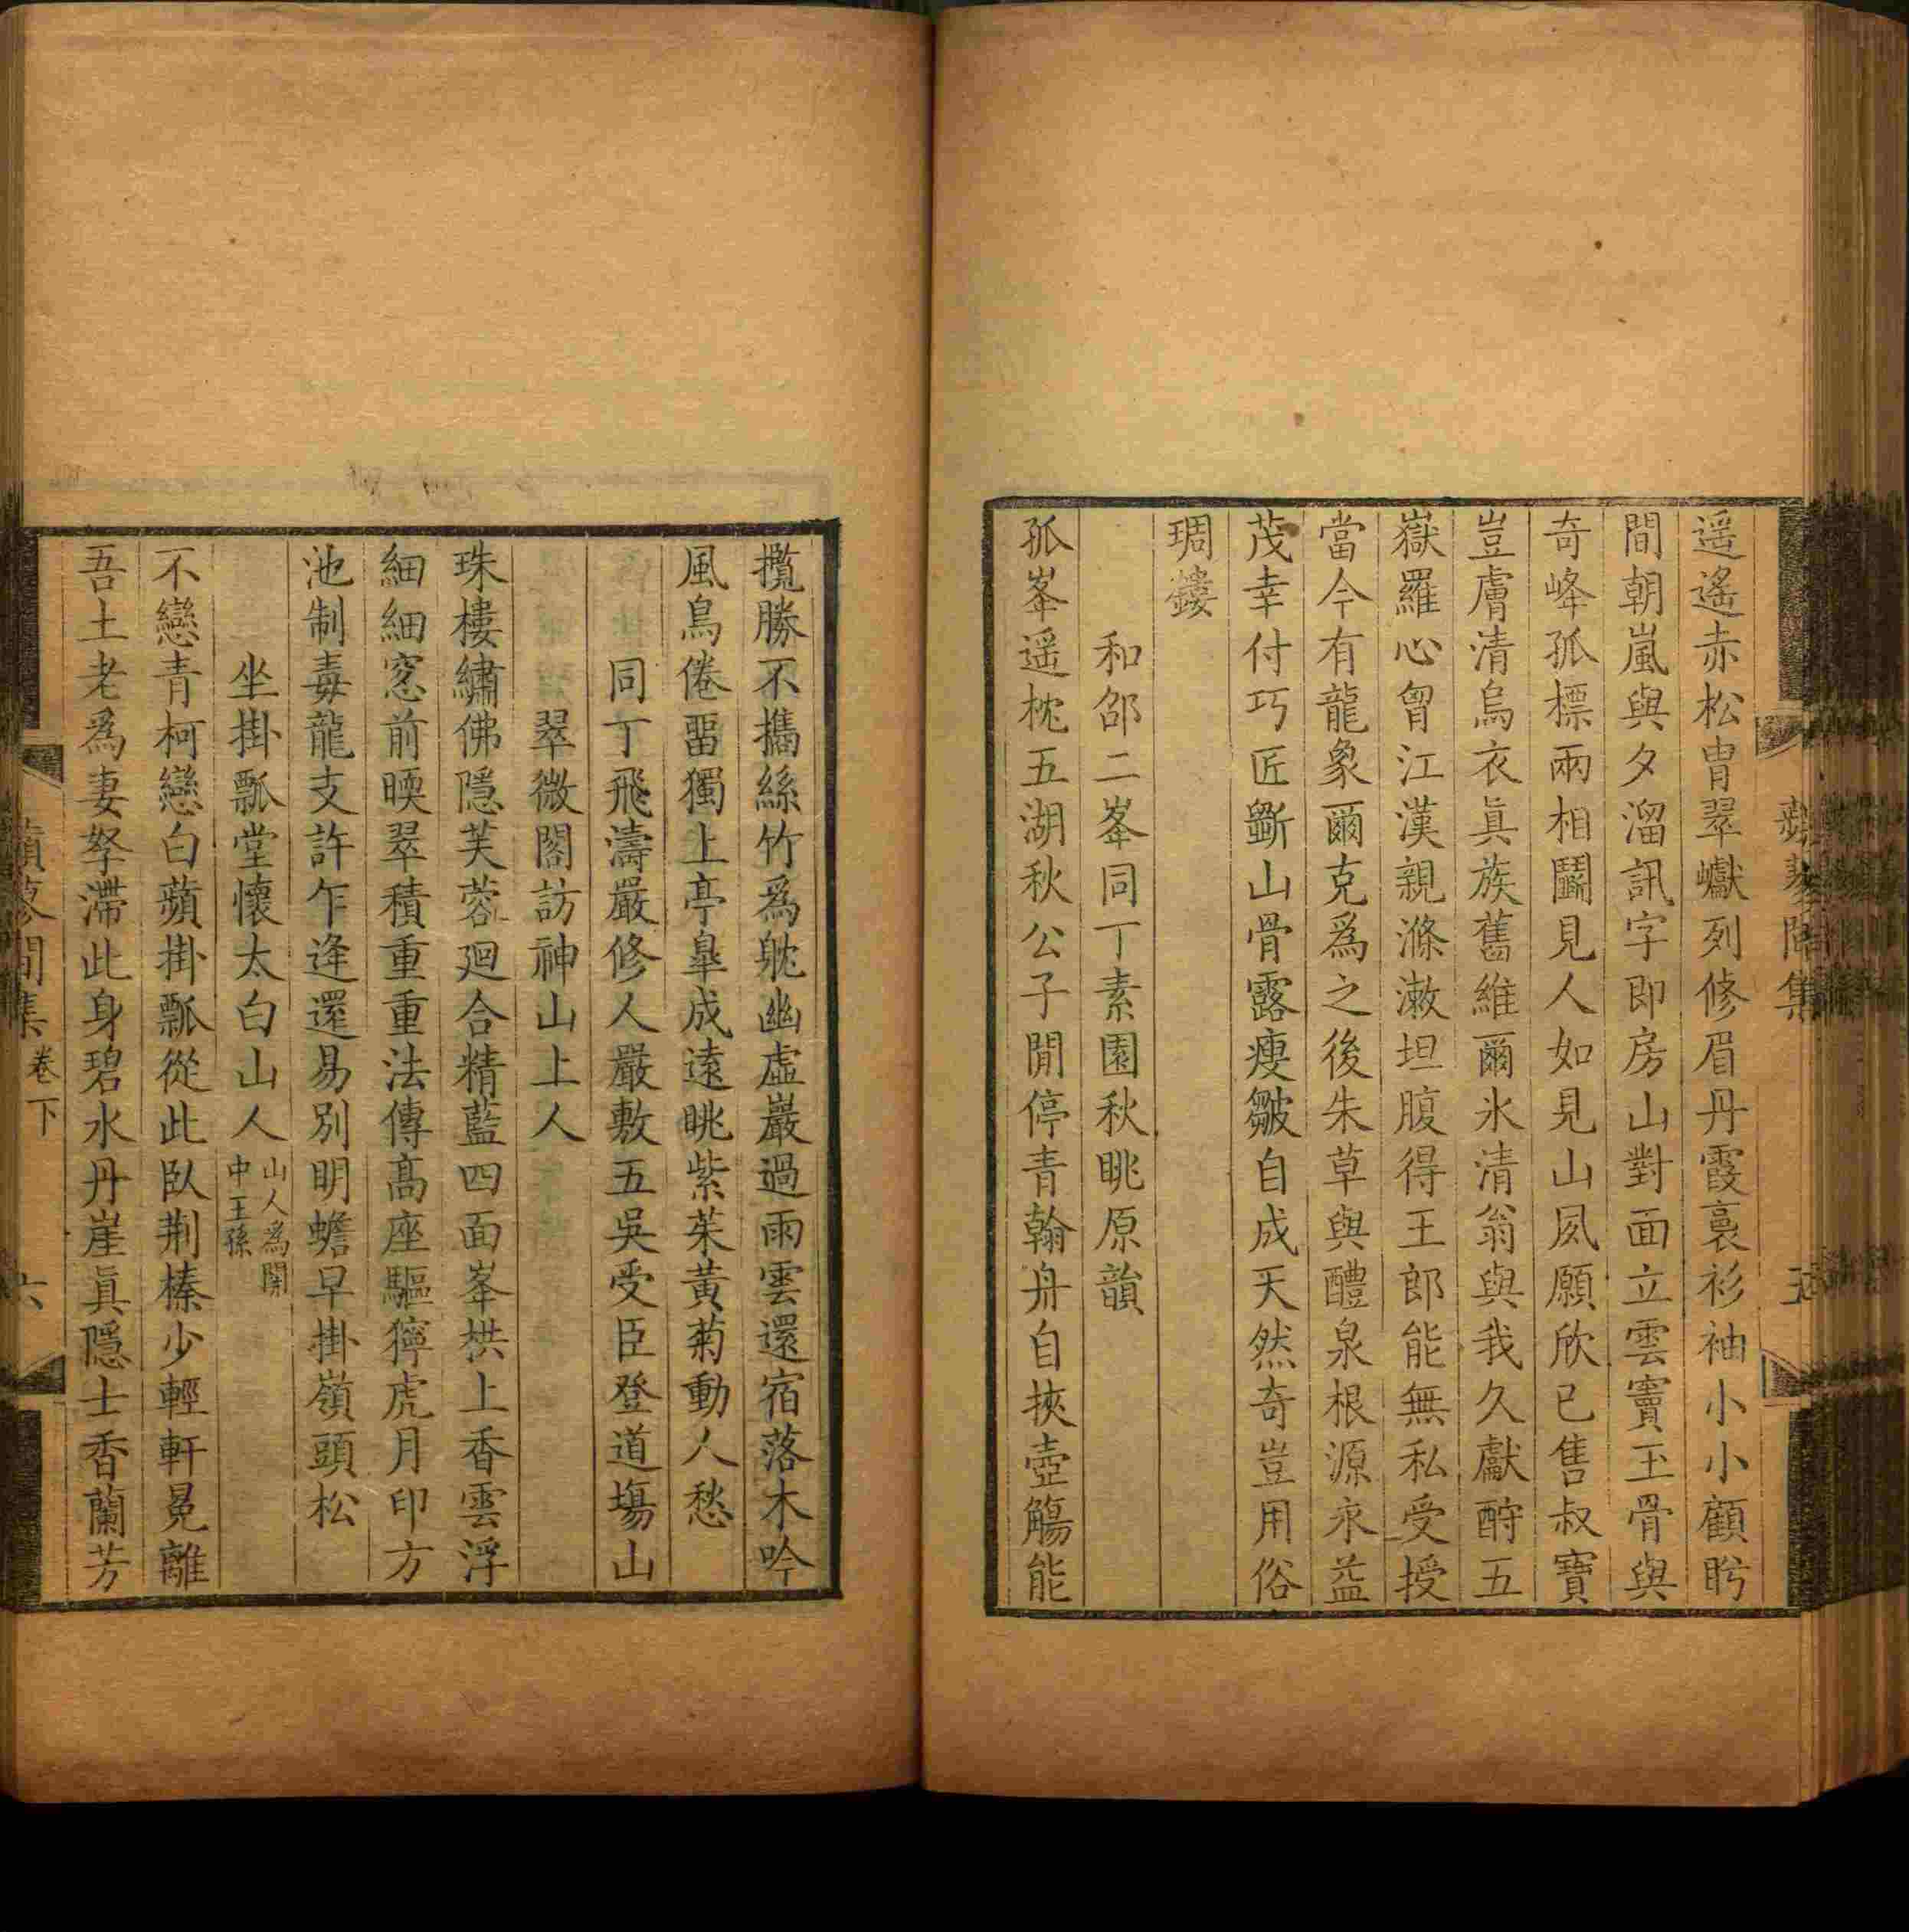 遥遙赤松胄翠巘列修眉丹霞裛衫袖小小顧盻
間朝嵐與夕溜訊字即房山對面立雲竇玉骨與
奇峰孤標兩相鬬見人如見山夙願欣已售叔寶
豈膚清烏衣眞族舊維爾氷清翁與我久獻酧五
嶽羅心胷江漢親滌漱坦腹得王郎能無私受授
當今有龍象爾克爲之後朱草與醴泉根源永益
茂幸付巧匠斵山骨露瘦皺自成天然奇豈用俗
琱鏤
和邵二峯同丁素園秋眺原韻
孤峯遥枕五湖秋公子閒停青翰舟自挾壺觴能
攬勝不攜絲竹爲躭幽虛巖過雨雲還宿落木吟
風鳥倦畱獨上亭臯成遠眺紫茱黃菊動人愁
同丁飛濤嚴修人嚴敷五吳受臣登道塲山
翠微閣訪神山上人
珠樓繡佛隱芙蓉廻合精藍四面峯栱上香雲浮
細細窓前暎翠積重重法傳高座驅獰虎月印方
池制毒龍支許乍逢還易別明蟾早掛嶺頭松
坐掛瓢堂懷太白山人山人爲關中王孫
不戀青柯戀白蘋掛瓢從此臥荆榛少輕軒冕離
吾土老爲妻孥滯此身碧水丹崖眞隱士香蘭芳
蘋蓼間集 卷下 六